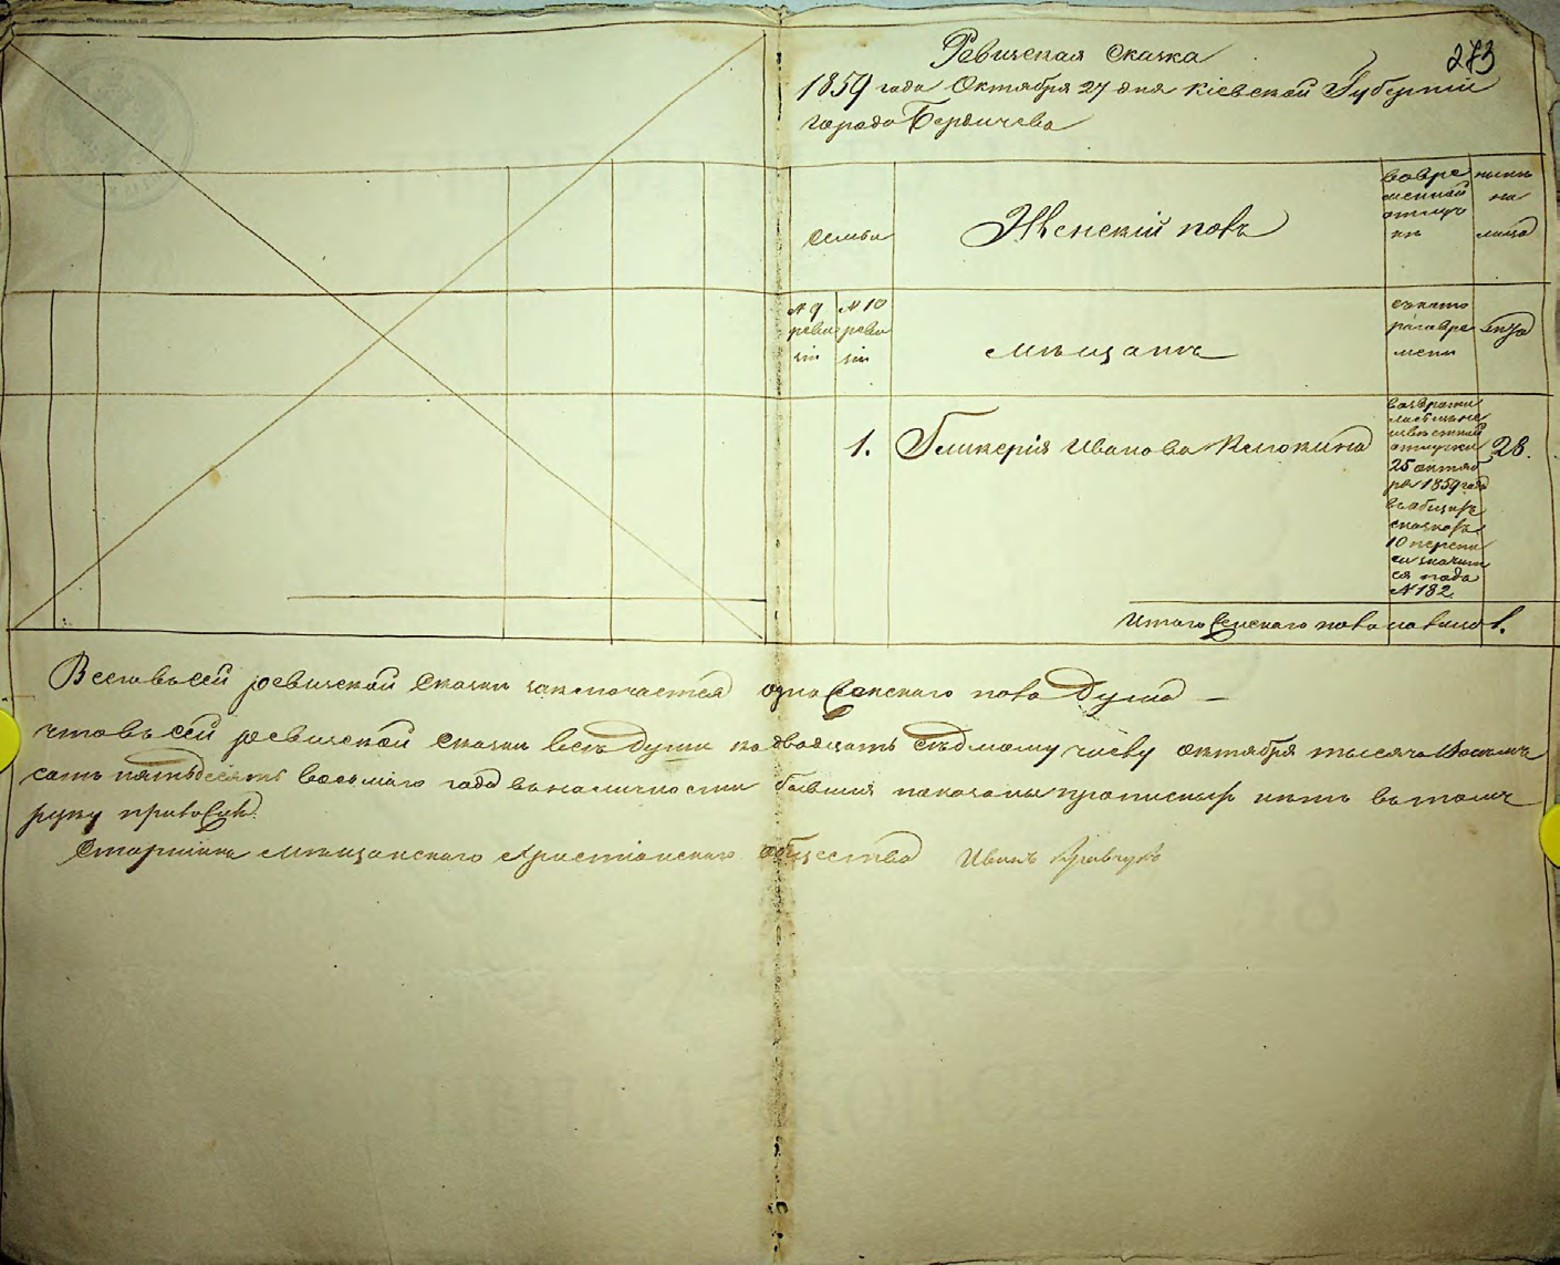 273
Ревизская Сказка
1859 года Октября 27 дня Кіевской Губерніи
города Бердичева
Семьи
Женскій полъ
во вре
менной
отлуч
кѣ
нынѣ
на
лицо
№ 9
реви
зіи
№ 10
реви
зіи
мѣщанъ
съ кото
раго вре
мени
лѣта
1.
Гликерія Иванова Клюкина
возврати
лась изъ не
извѣстной
отлучки
25 октяб
ря 1859 года
въ общихъ
сказкахъ
10 перепи
си значит
ся подъ
№ 182.
28.
Итого Женскаго пола на лицо 1.
Всего въ сей ревизской сказкѣ заключается одна Женскаго пола душа —
что въ сей ревизской сказкѣ всѣ души по двадцать седьмому числу октября тысяча восемь
сотъ пятьдесятъ восьмаго года въ наличности бывшія показаны и прописныхъ нѣтъ въ томъ
руку приложилъ.
Старшина мѣщанскаго христіанскаго общества Иванъ Кравчукъ